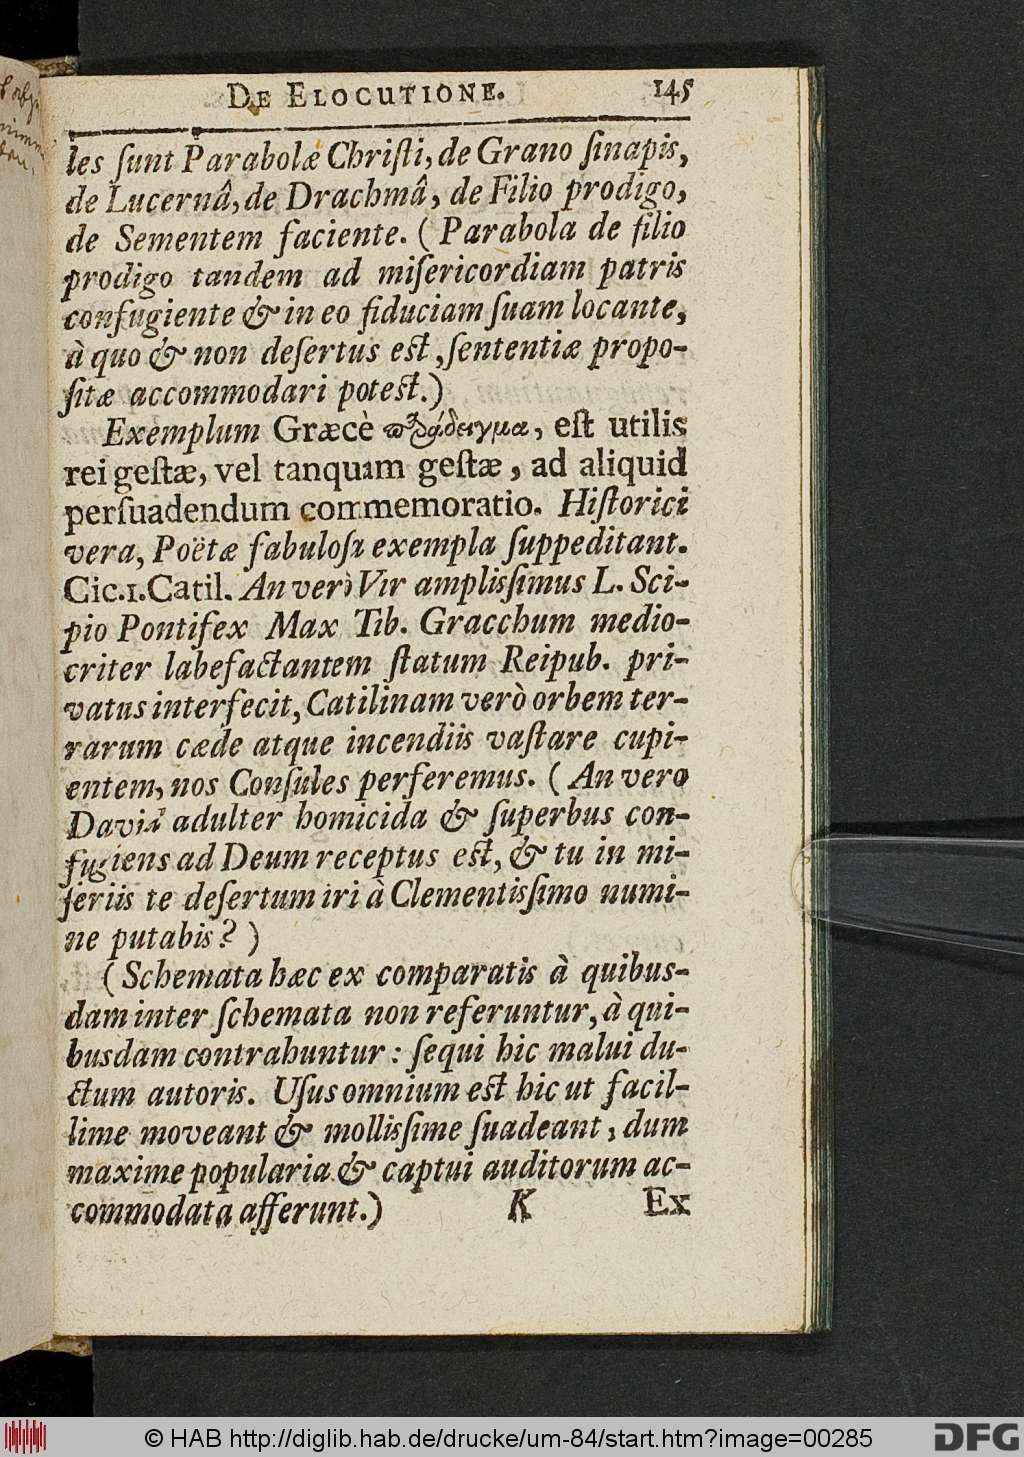 DE ELOCUTIONE. 145
les ſunt Parabolæ Chriſti, de Grano ſinapis,
de Lucernâ, de Drachmâ, de Filio prodigo,
de Sementem faciente. ( Parabola de filio
prodigo tandem ad miſericordiam patris
confugiente & in eo fiduciam ſuam locante,
à quo & non deſertus eſt, ſententiæ propo-
ſitæ accommodari poteſt.)
Exemplum Græcè παράδειγμα, eſt utilis
rei geſtæ, vel tanquam geſtæ, ad aliquid
perſuadendum commemoratio. Hiſtorici
vera, Poëtæ fabuloſa exempla ſuppeditant.
Cic.1.Catil. An verò Vir ampliſſimus L. Sci-
pio Pontifex Max Tib. Gracchum medio-
criter labefactantem ſtatum Reipub. pri-
vatus interfecit, Catilinam verò orbem ter-
rarum cæde atque incendiis vaſtare cupi-
entem, nos Conſules perferemus. ( An vero
David adulter homicida & ſuperbus con-
fugiens ad Deum receptus eſt, & tu in mi-
ſeriis te deſertum iri à Clementiſſimo numi-
ne putabis? )
( Schemata hæc ex comparatis à quibus-
dam inter ſchemata non referuntur, à qui-
busdam contrahuntur: ſequi hic malui du-
ctum autoris. Uſus omnium eſt hic ut facil-
lime moveant & molliſſime ſuadeant, dum
maxime popularia & captui auditorum ac-
commodata afferunt.) K Ex
© HAB http://diglib.hab.de/drucke/um-84/start.htm?image=00285
DFG